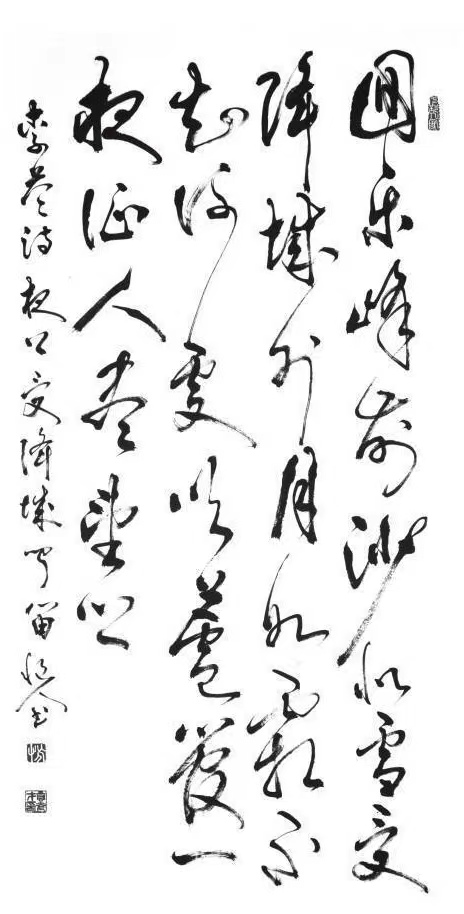 回乐峰前沙似雪受
降城外月如霜不
知何處吹蘆管一
夜征人尽望乡
李益诗夜上受降城闻笛 书